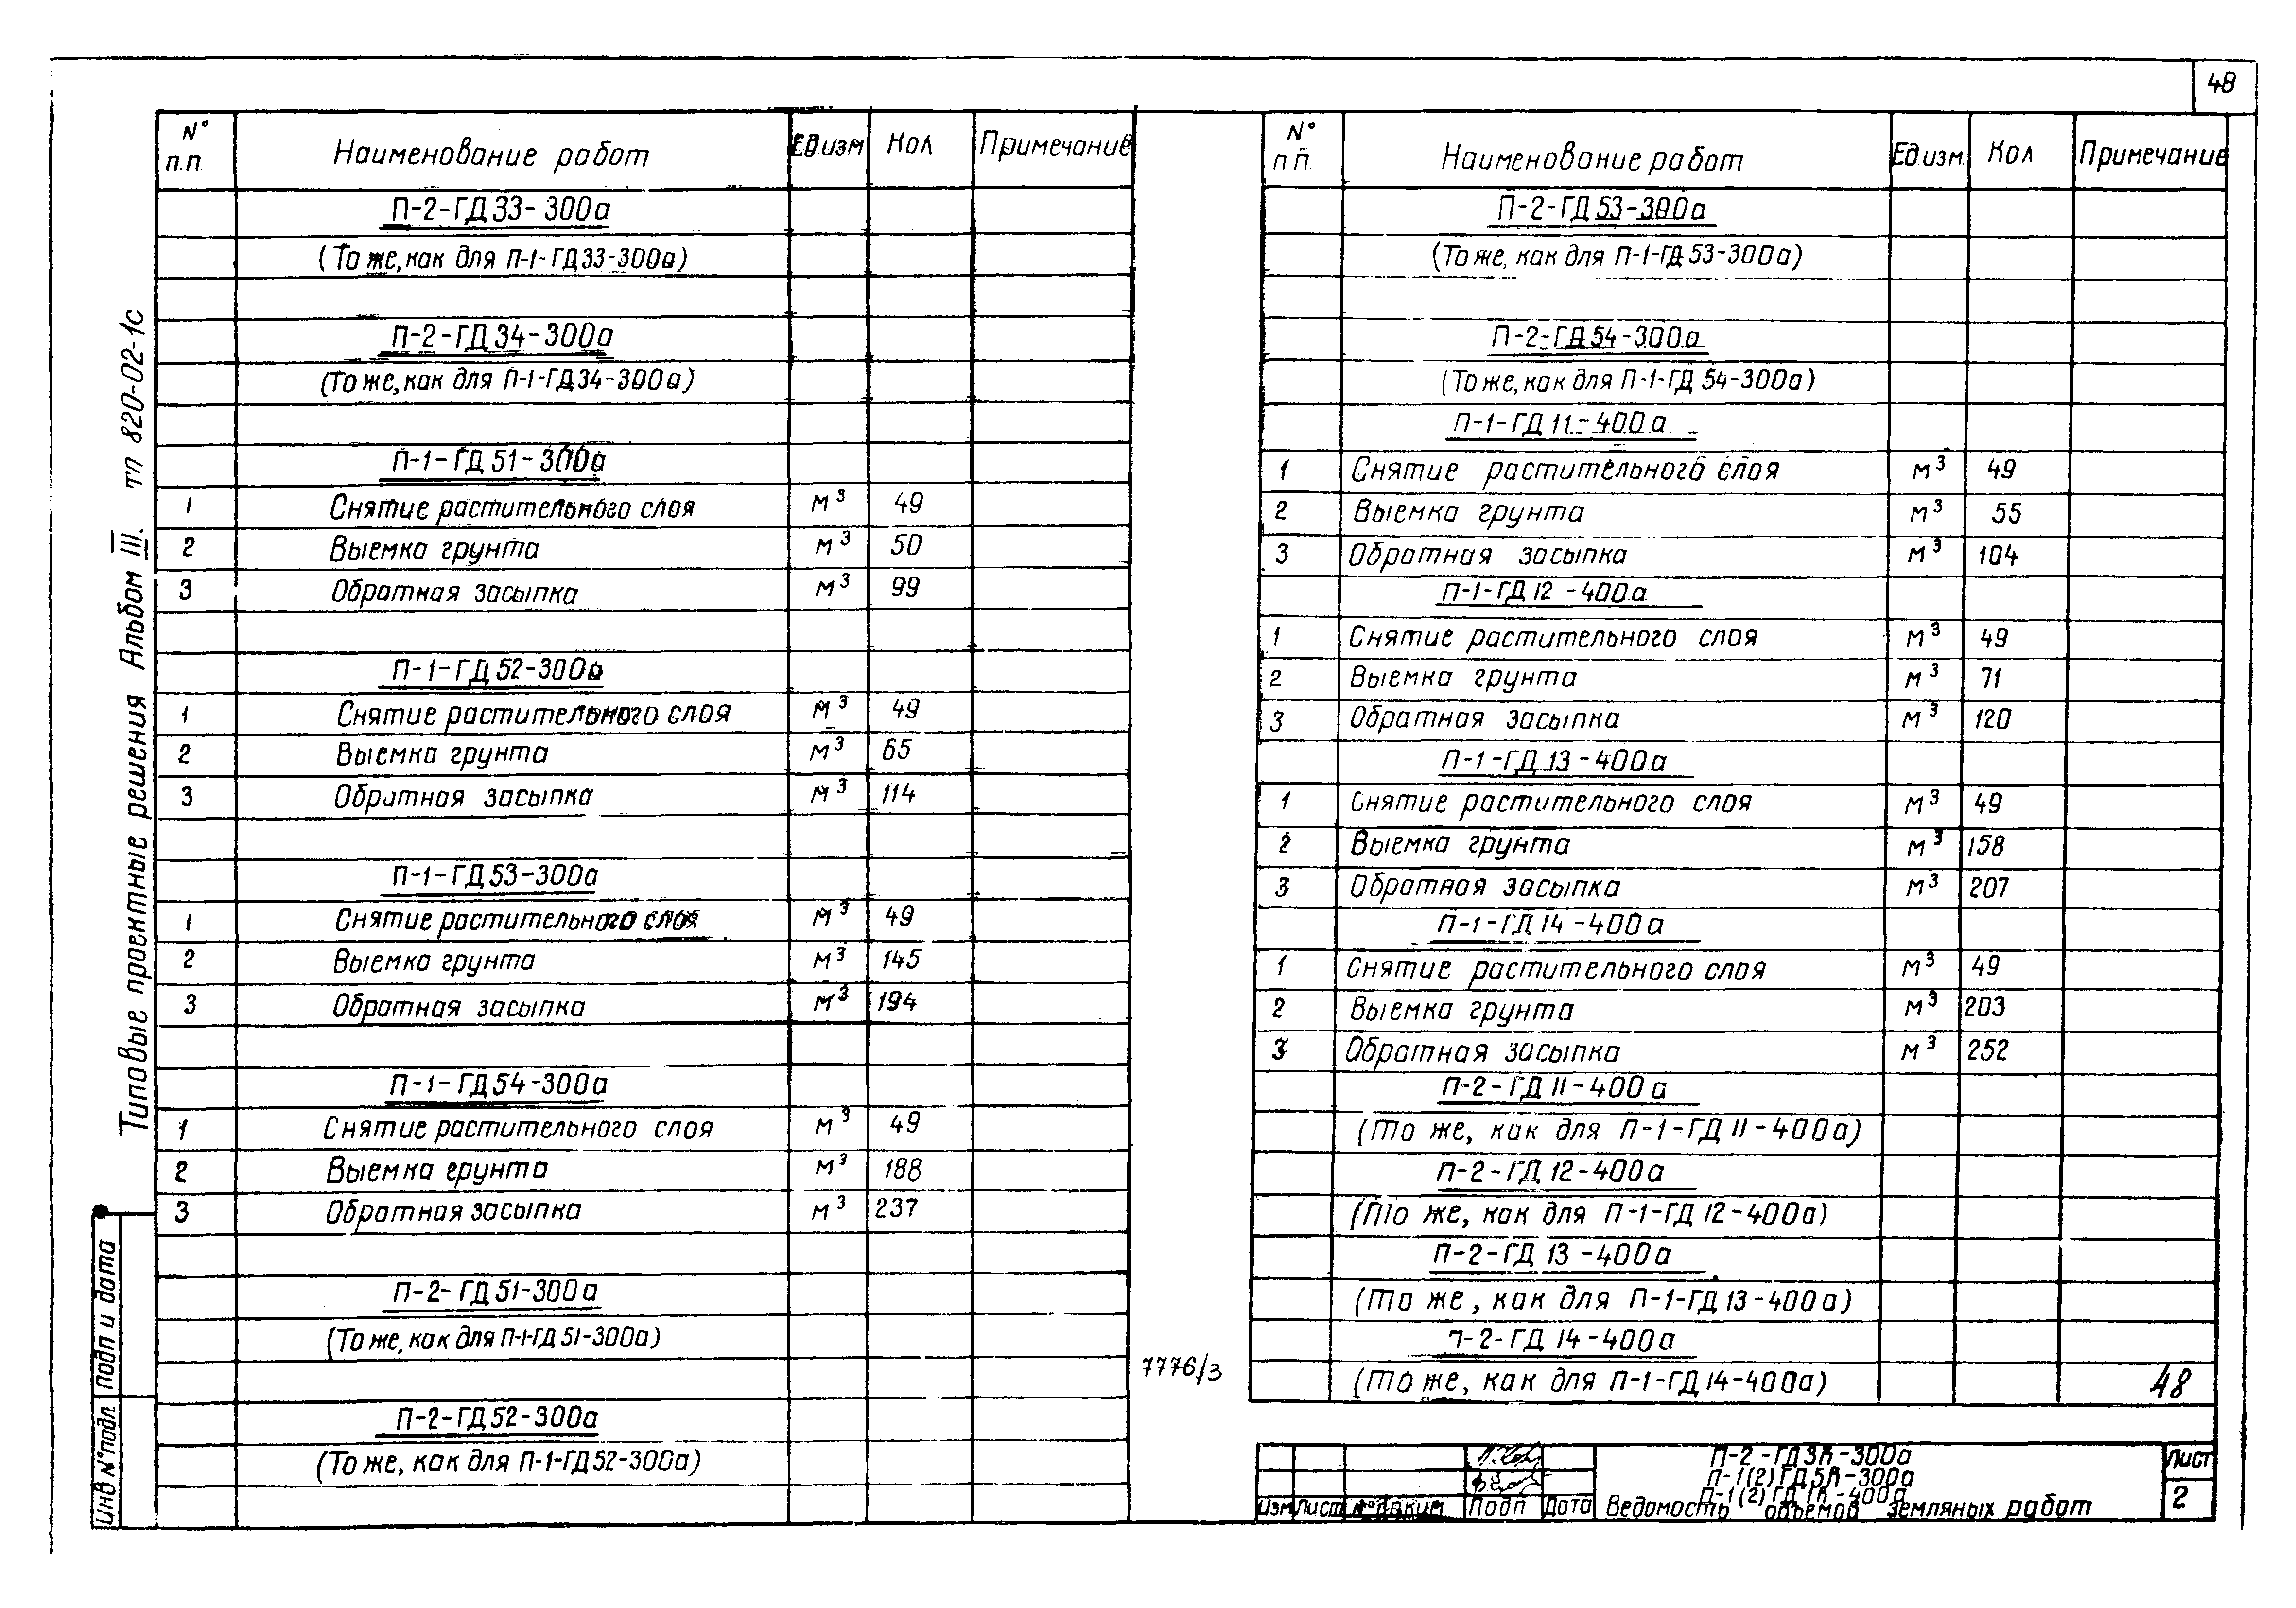 48
Типовые проектные решения Альбом III. тп 820-02-1с
№ п.п. Наименование работ Ед.изм Кол Примечание
П-2-ГД33-300а
(То же, как для П-1-ГД33-300а)
П-2-ГД34-300а
(То же, как для П-1-ГД34-300а)
П-1-ГД51-300а
1 Снятие растительного слоя м³ 49
2 Выемка грунта м³ 50
3 Обратная засыпка м³ 99
П-1-ГД52-300а
1 Снятие растительного слоя м³ 49
2 Выемка грунта м³ 65
3 Обратная засыпка м³ 114
П-1-ГД53-300а
1 Снятие растительного слоя м³ 49
2 Выемка грунта м³ 145
3 Обратная засыпка м³ 194
П-1-ГД54-300а
1 Снятие растительного слоя м³ 49
2 Выемка грунта м³ 188
3 Обратная засыпка м³ 237
П-2-ГД51-300а
(То же, как для П-1-ГД51-300а)
П-2-ГД52-300а
(То же, как для П-1-ГД52-300а)
Инв № подл Подп и дата
7776/3
№ п п. Наименование работ Ед.изм. Кол. Примечание
П-2-ГД53-300а
(То же, как для П-1-ГД53-300а)
П-2-ГД54-300а
(То же, как для П-1-ГД54-300а)
П-1-ГД11-400а
1 Снятие растительного слоя м³ 49
2 Выемка грунта м³ 55
3 Обратная засыпка м³ 104
П-1-ГД12-400а
1 Снятие растительного слоя м³ 49
2 Выемка грунта м³ 71
3 Обратная засыпка м³ 120
П-1-ГД13-400а
1 Снятие растительного слоя м³ 49
2 Выемка грунта м³ 158
3 Обратная засыпка м³ 207
П-1-ГД14-400а
1 Снятие растительного слоя м³ 49
2 Выемка грунта м³ 203
3 Обратная засыпка м³ 252
П-2-ГД11-400а
(То же, как для П-1-ГД11-400а)
П-2-ГД12-400а
(То же, как для П-1-ГД12-400а)
П-2-ГД13-400а
(То же, как для П-1-ГД13-400а)
П-2-ГД14-400а
(То же, как для П-1-ГД14-400а)
48
П-2-ГД3П-300а
П-1(2)ГД5П-300а
П-1(2)ГД1П-400а
Ведомость объемов земляных работ
Изм Лист № докум Подп Дата
Лист
2